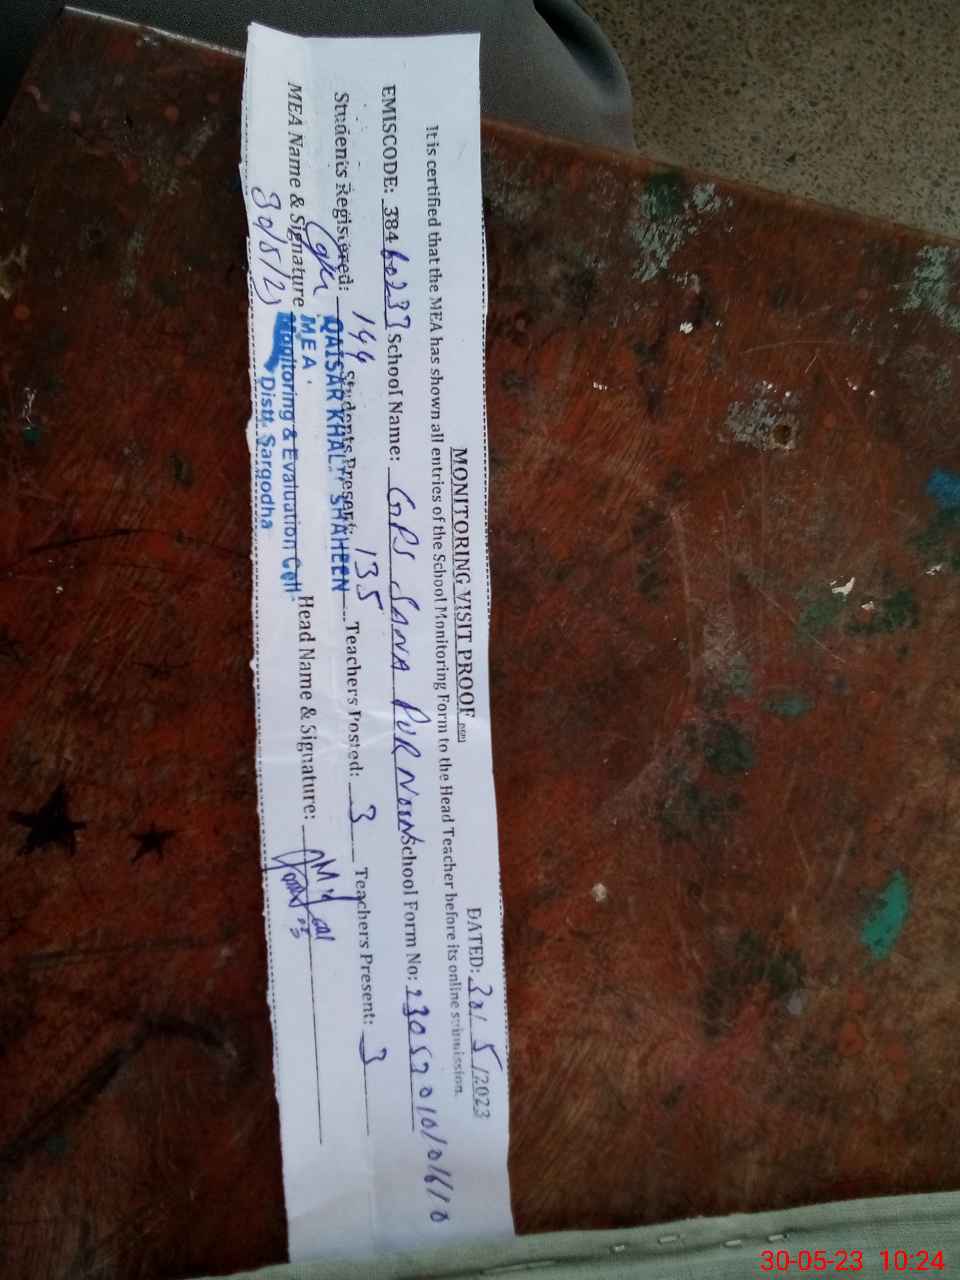 MONITORING VISIT PROOF
DATED: 30/ 5 /2023
It is certified that the MEA has shown all entries of the School Monitoring Form to the Head Teacher before its online submission.
EMISCODE: 38460237 School Name: GPS SANA PUR NOON School Form No:
Students Registered: 144 Students Present: 135 Teachers Posted: 3 Teachers Present: 3
QAISAR KHALID SHAHEEN
MEA Name & Signature Head Name & Signature:
MEA.
Monitoring & Evaluation Cell
Distt. Sargodha
30/5/23
30-05-23 10:24